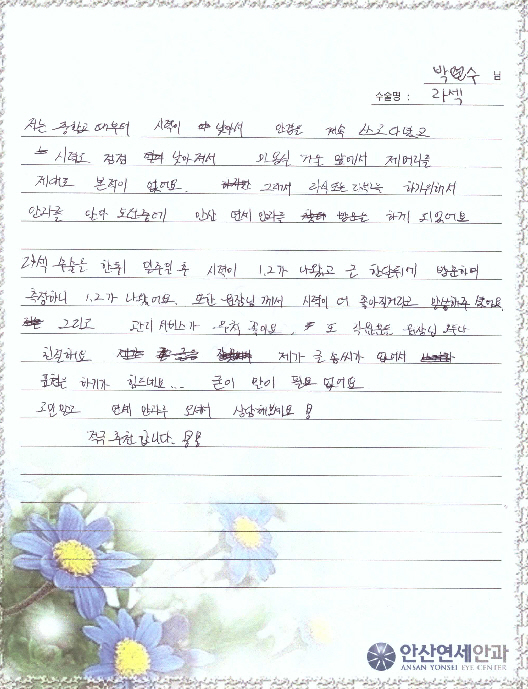 박연수 님
수술명 : 라섹
저는 중학교 때부터 시력이 낮아서 안경을 계속 쓰고다녔고
시력도 점점 낮아져서 미용실 가도 앞에서 제머리를
제대로 본적이 없어요. 그래서 라식또는 라섹을 하기위해서
안과를 찾다 도중에 안산 연세 안과를 하게 되었어요
라섹 수술은 한뒤 일주일 후 시력이 1.2가 나왔고 근 한달뒤에 방문하여
측정하니 1.2가 나왔어요. 또한 원장님 께서 시력이 더 좋아질거라고 말씀해주셨어요.
그리고 관리 서비스가 무척 좋아요. 또 직원분들 원장님 모두다
친절해요 제가 글솜씨가 없어서
표현은 하기가 힘드네요... 큰이 말이 필요 없어요
고민말고 연세 안과로 오셔서 상담해보세요
적극 추천 합니다.
안산연세안과
ANSAN YONSEI EYE CENTER